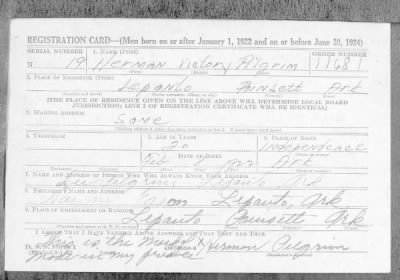 REGISTRATION CARD—(Men born on or after January 1, 1922 and on or before June 30, 1924)
SERIAL NUMBER 1. NAME (Print) ORDER NUMBER
N 19 HERMAN Victory PilgRim 11681
(First) (Middle) (Last)
2. PLACE OF RESIDENCE (Print)
Lepanto Poinsett Ark
[THE PLACE OF RESIDENCE GIVEN ON THE LINE ABOVE WILL DETERMINE LOCAL BOARD
JURISDICTION; LINE 2 OF REGISTRATION CERTIFICATE WILL BE IDENTICAL]
3. MAILING ADDRESS
Same
4. TELEPHONE 5. AGE IN YEARS 6. PLACE OF BIRTH
20 Independence
DATE OF BIRTH
Feb Ark
7. NAME AND ADDRESS OF PERSON WHO WILL ALWAYS KNOW YOUR ADDRESS
Pilgrim Lepanto Ark
8. EMPLOYER'S NAME AND ADDRESS
Lepanto, Ark
9. PLACE OF EMPLOYMENT OR BUSINESS
Lepanto Poinsett Ark
I AFFIRM THAT I HAVE VERIFIED ABOVE ANSWERS AND THAT THEY ARE TRUE.
D. S. S. Form 1
This is the mark X Hermon Pilgrim
made in my